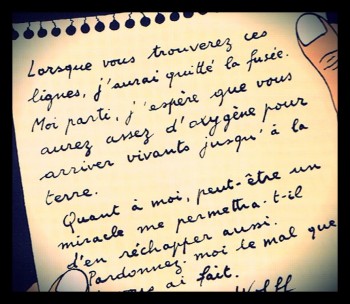 Lorsque vous trouverez ces
lignes, j'aurai quitté la fusée.
Moi parti, j'espère que vous
aurez assez d'oxygène pour
arriver vivants jusqu'à la
terre.
Quant à moi, peut-être un
miracle me permettra-t-il
d'en réchapper aussi.
Pardonnez-moi le mal que
ai fait.
Wolff